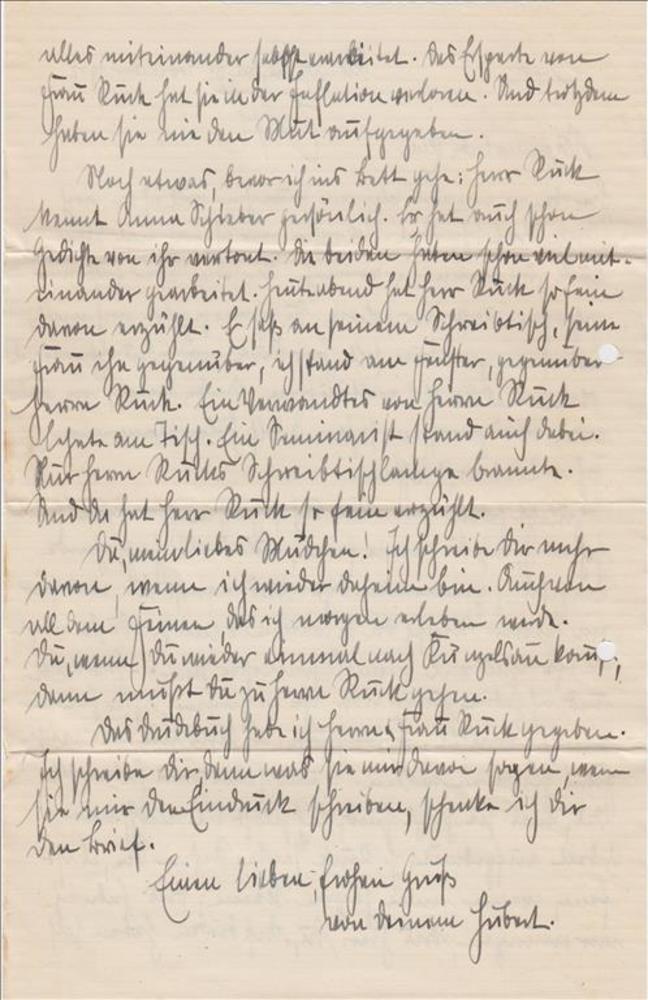 alles miteinander selbst erarbeitet. Das Ersparte von
Frau Rück hat sie in der Inflation verloren. Und trotzdem
haben sie nie den Mut aufgegeben.
Noch etwas, bevor ich ins Bett gehe: Herr Rück
kennt Anna Schieber persönlich. Er hat auch schon
Gedichte von ihr vertont. Die beiden haben schon viel mit-
einander gearbeitet. Heute abend hat Herr Rück so fein
davon erzählt. Er saß an seinem Schreibtisch, seine
Frau ihm gegenüber, ich stand am Fenster, gegenüber
Herrn Rück. Ein Verwandter von Herrn Rück
lehnte am Tisch. Ein Seminarist stand auch dabei.
Nur Herrn Rücks Schreibtischlampe brannte.
Und da hat Herr Rück so fein erzählt.
Du, mein liebes Mädchen! Ich schreibe Dir mehr
davon, wenn ich wieder daheim bin. Auch von
all dem Feinen, das ich morgen erleben werde.
Du, wenn Du wieder einmal nach Künzelsau kommst,
dann mußt Du zu Herrn Rück gehen.
Das habe ich Herrn & Frau Rück gegeben.
Ich schreibe Dir dann was sie mir davon sagen, wenn
sie mir den Eindruck schreiben, schenke ich Dir
den Brief.
Einen lieben, frohen Gruß
von Deinem Hubert.